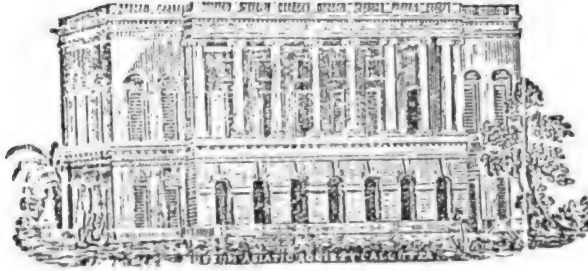 ASIATIC SOCIETY, CALCUTTA